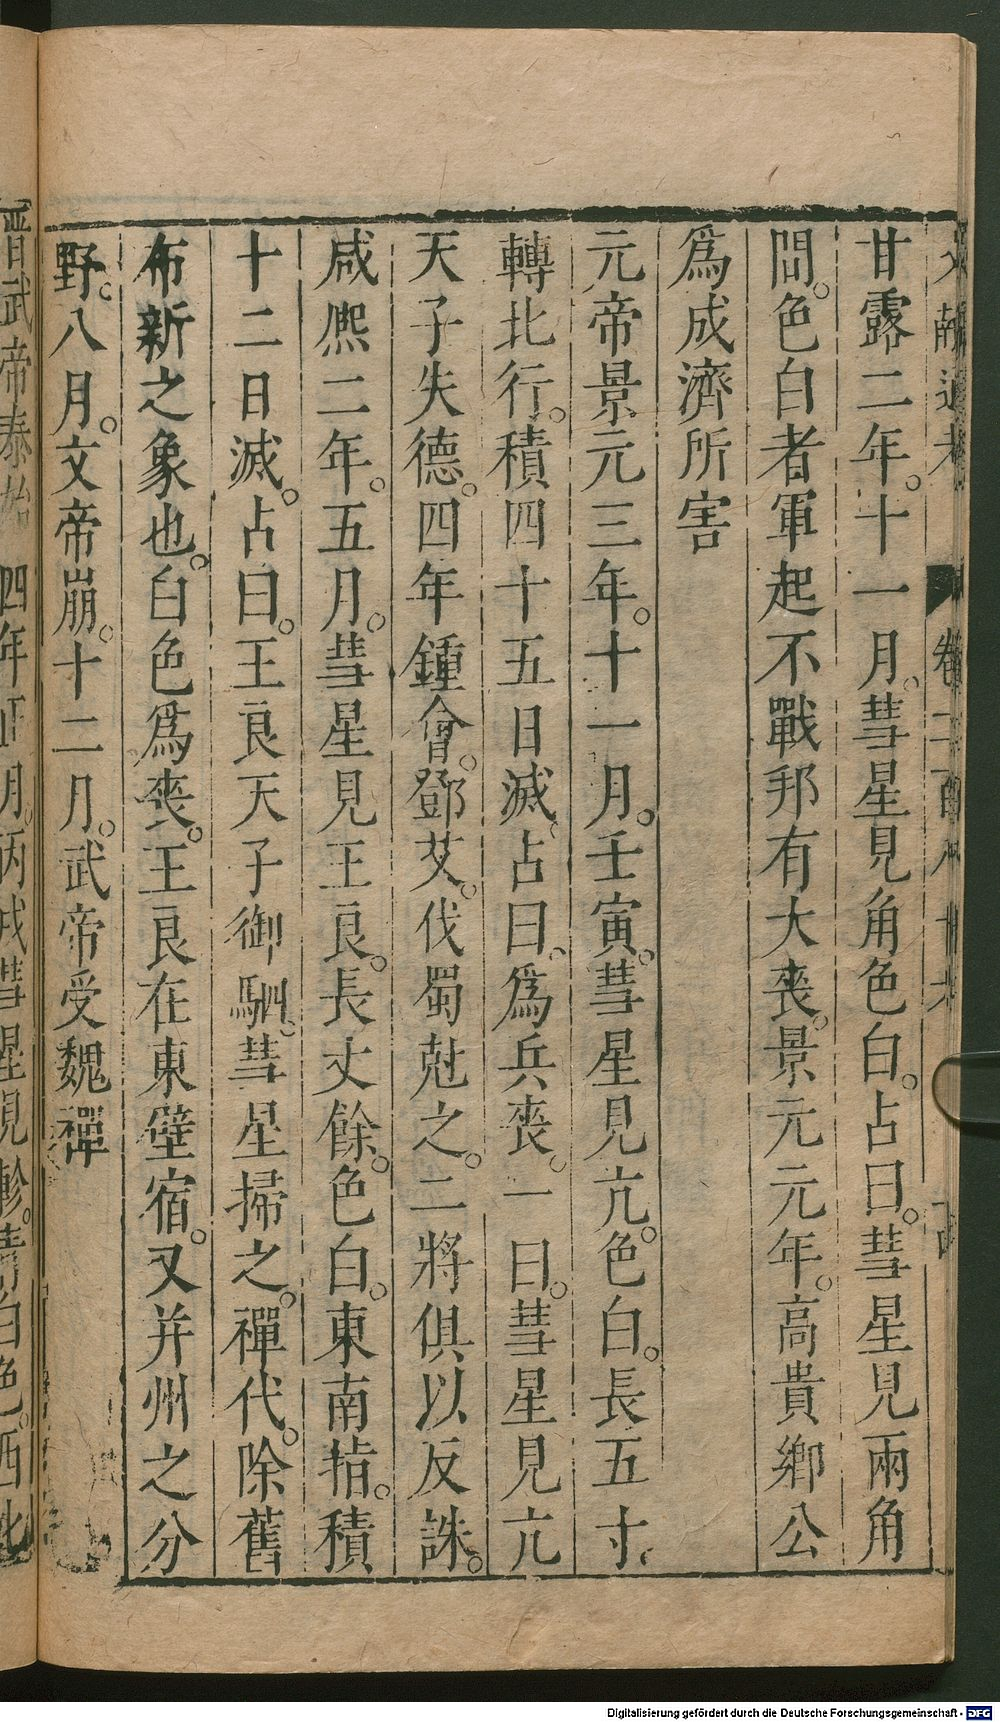 甘露二年。十一月。彗星見角色白。占曰。彗星見兩角
間。色白者軍起不戰邦有大喪。景元元年。高貴鄉公
爲成濟所害
元帝景元三年。十一月。壬寅。彗星見亢。色白。長五寸。
轉北行。積四十五日滅。占曰。爲兵喪。一曰。彗星見亢
天子失德。四年鍾會。鄧艾。伐蜀尅之。二將俱以反誅。
咸熙二年。五月。彗星見王良。長丈餘。色白。東南指。積
十二日滅。占曰。王良天子御駟。彗星掃之。禪代。除舊
布新之象也。白色爲喪。王良在東壁宿。又并州之分
野。八月。文帝崩。十二月。武帝受魏禪
晉武帝泰始四年正月。丙戌彗星見軫。青白色。西北
Digitalisierung gefördert durch die Deutsche Forschungsgemeinschaft - DFG